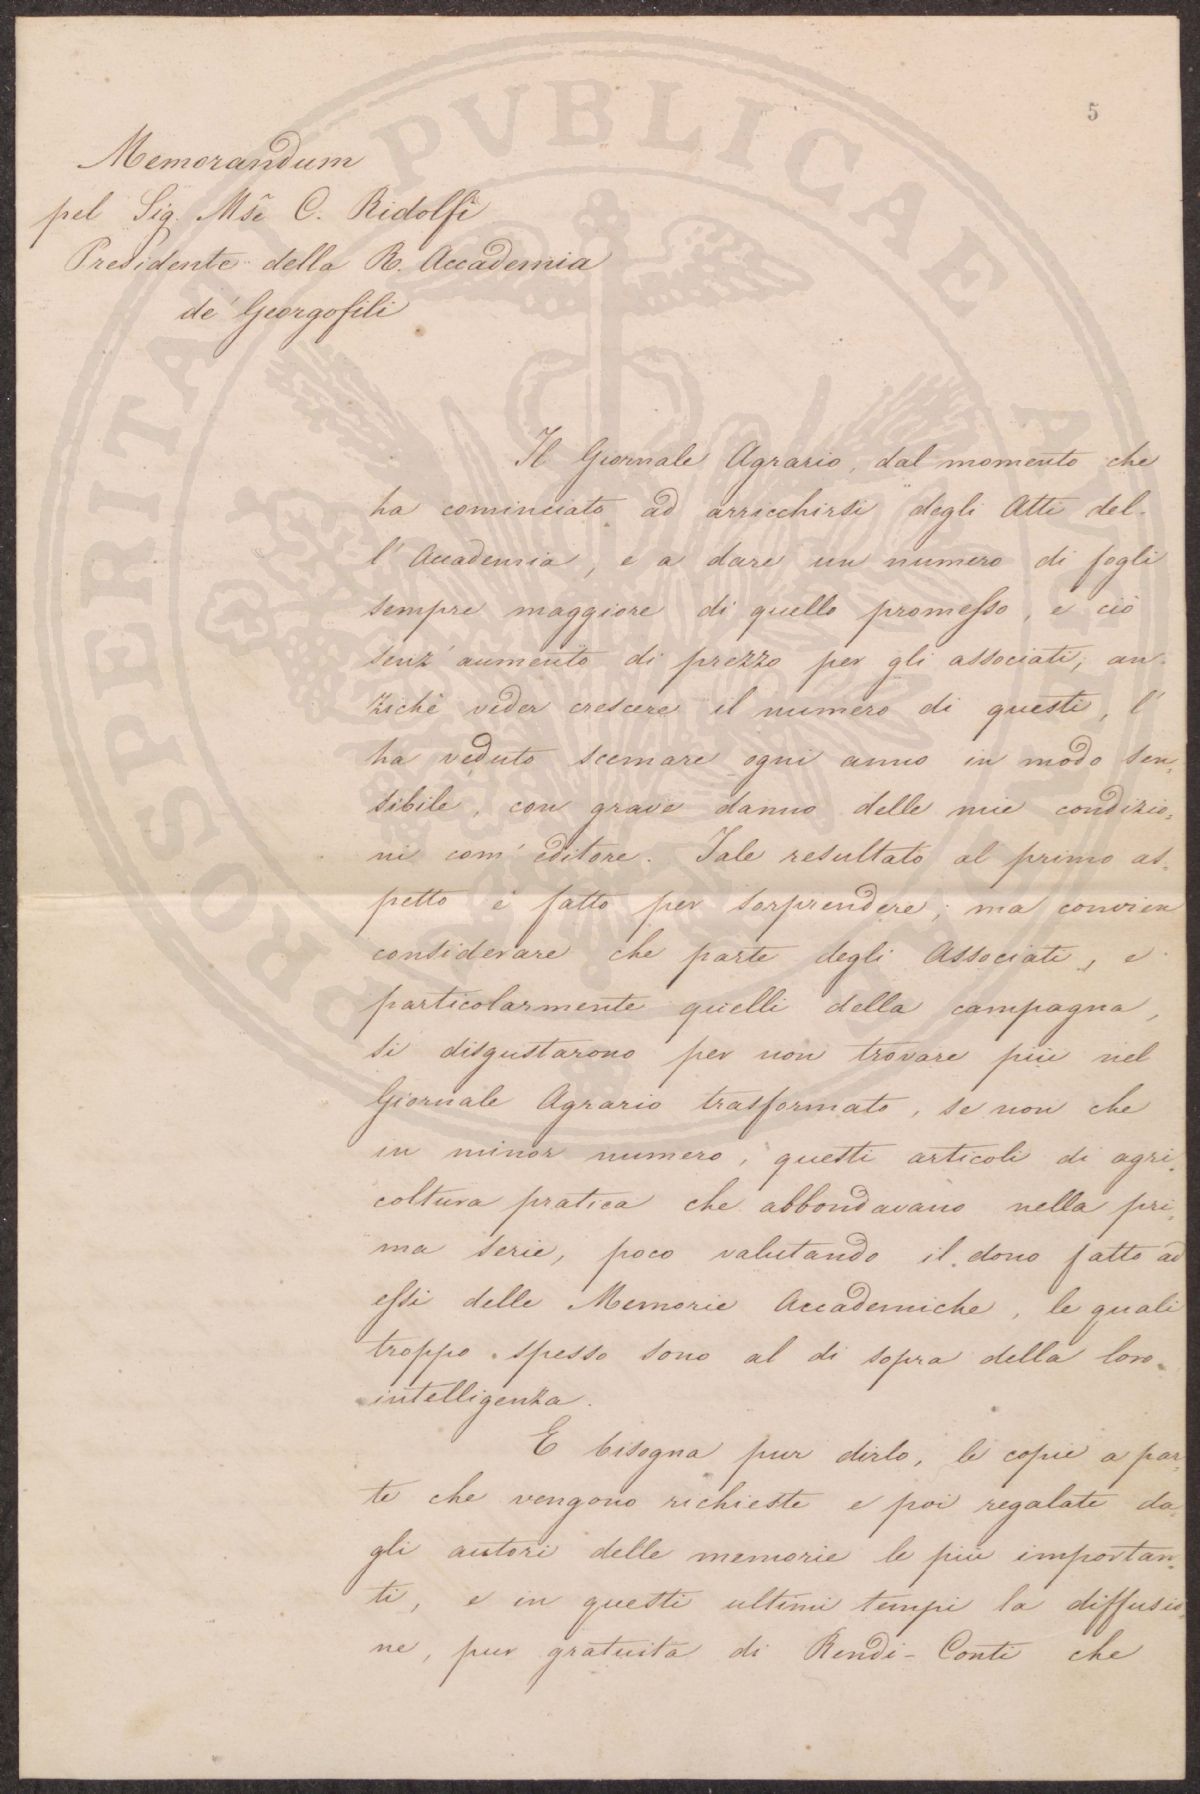 5
Memorandum
pel Sig. Mse C. Ridolfi
Presidente della R. Accademia
de' Georgofili
Il Giornale Agrario, dal momento che
ha cominciato ad arricchirsi degli Atti del-
l'Accademia, e a dare un numero di fogli
sempre maggiore di quello promesso, e ciò
senz'aumento di prezzo per gli associati, an-
zichè veder crescere il numero di questi, l'
ha veduto scemare ogni anno in modo sen-
sibile, con grave danno delle mie condizio-
ni com'editore. Tale resultato al primo as-
petto è fatto per sorprendere; ma convien
considerare che parte degli Associati, e
particolarmente quelli della campagna,
si disgustarono per non trovare più nel
Giornale Agrario trasformato, se non che
in minor numero, questi articoli di agri-
coltura pratica che abbondavano nella pri-
ma serie, poco valutando il dono fatto ad
essi delle Memorie Accademiche, le quali
troppo spesso sono al di sopra della loro
intelligenza.
E bisogna pur dirlo, le copie a par-
te che vengono richieste e poi regalate da-
gli autori delle memorie le più importan-
ti, e in questi ultimi tempi la diffusio-
ne, pur gratuita di Rendi-Conti che
PROSPERITATI PVBLICAE AVGENDAE